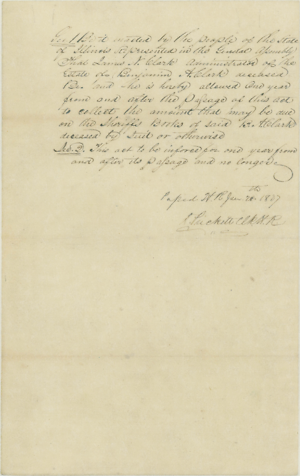 Sec 1 Be it enacted by the people of the State
of Illinois represented in the General Assembly
That James A Clark Administrator of the
Estate of Benjamin A Clark deceased
Be and he is hereby allowed one year
from and after the passage of this act
to collect the amount that may be due
on the Sheriffs Books of said B. A Clark
deceased by Suit or otherwise
Sec 2. This act to be in force for one year from
and after its passage and no longer
Passed H R Jan 28th 1837
Prickett Clk H. R